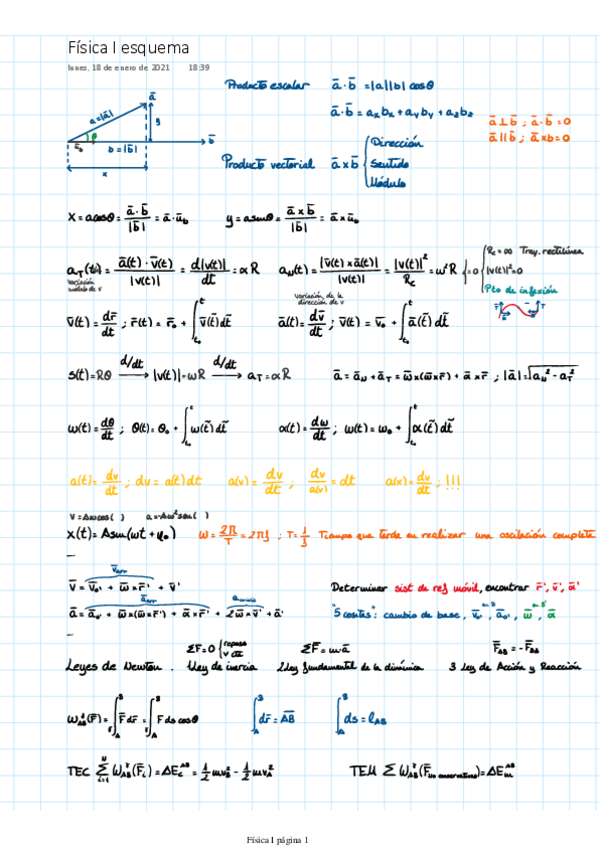 Física I esquema
lunes, 18 de enero de 2021 18:39
Producto escalar ā·b̄ = |a||b| cosθ
ā·b̄ = aₓbₓ + a_y b_y + a_z b_z
ā ⊥ b̄ ; ā·b̄ = 0
ā ∥ b̄ ; ā×b̄ = 0
a = |ā| ā θ ū_b b = |b̄| b̄ y x
Producto vectorial ā×b̄ { Dirección
Sentido
Módulo
x = a cosθ = ā·b̄/|b̄| = ā·ū_b y = a senθ = ā×b̄/|b̄| = ā×ū_b
a_T(t) = ā(t)·v̄(t)/|v(t)| = d|v(t)|/dt = αR a_N(t) = |v̄(t)×ā(t)|/|v(t)| = |v(t)|²/R_c = ω²R { = 0 { R_c = ∞ Tray. rectilínea
|v(t)|² = 0
Pto de inflexión
variación módulo de v variación de la dirección de v
v̄(t) = dr̄/dt ; r̄(t) = r̄₀ + ∫_{t₀}^{t} v̄(t̃)dt̃ ā(t) = dv̄/dt ; v̄(t) = v̄₀ + ∫_{t₀}^{t} ā(t̃)dt̃
s(t) = Rθ —d/dt→ |v(t)| = ωR —d/dt→ a_T = αR ā = ā_N + ā_T = ω̄×(ω̄×r̄) + ᾱ×r̄ ; |ā| = √(a_N² - a_T²)
ω(t) = dθ/dt ; θ(t) = θ₀ + ∫_{t₀}^{t} ω(t̃)dt̃ α(t) = dω/dt ; ω(t) = ω₀ + ∫_{t₀}^{t} α(t̃)dt̃
a(t) = dv/dt ; dv = a(t)dt a(v) = dv/dt ; dv/a(v) = dt a(x) = dv/dt ; !!!
v = Aωcos( ) a = -Aω²sen( )
x(t) = Asen(ωt + φ₀) ω = 2π/T = 2πf ; T = 1/f Tiempo que tarda en realizar una oscilación completa
v̄_arr
v̄ = v̄₀' + ω̄×r̄' + v̄' Determinar sist de ref móvil, encontrar r̄', v̄', ā'
ā_arr
ā = ā₀' + ω̄×(ω̄×r̄') + ᾱ×r̄' + 2ω̄×v̄' + ā' "5 cositas": cambio de base, v̄₀', ā₀', ω̄, ᾱ
ΣF = 0 { reposo
v cte ΣF = m·a F̄_AB = -F̄_BA
Leyes de Newton. 1 Ley de inercia 2 Ley fundamental de la dinámica 3 Ley de Acción y Reacción
W_AB(F̄) = ∫_A^B F̄dr̄ = ∫_A^B F ds cosθ ∫_A^B dr̄ = AB ∫_A^B ds = l_AB
TEC Σ_{i=1}^{N} W_AB(F̄ᵢ) = ΔE_c^{AB} = ½mv_B² - ½mv_A² TEM Σ W_AB(F̄_{no conservativa}) = ΔE_m^{AB}
Física I página 1